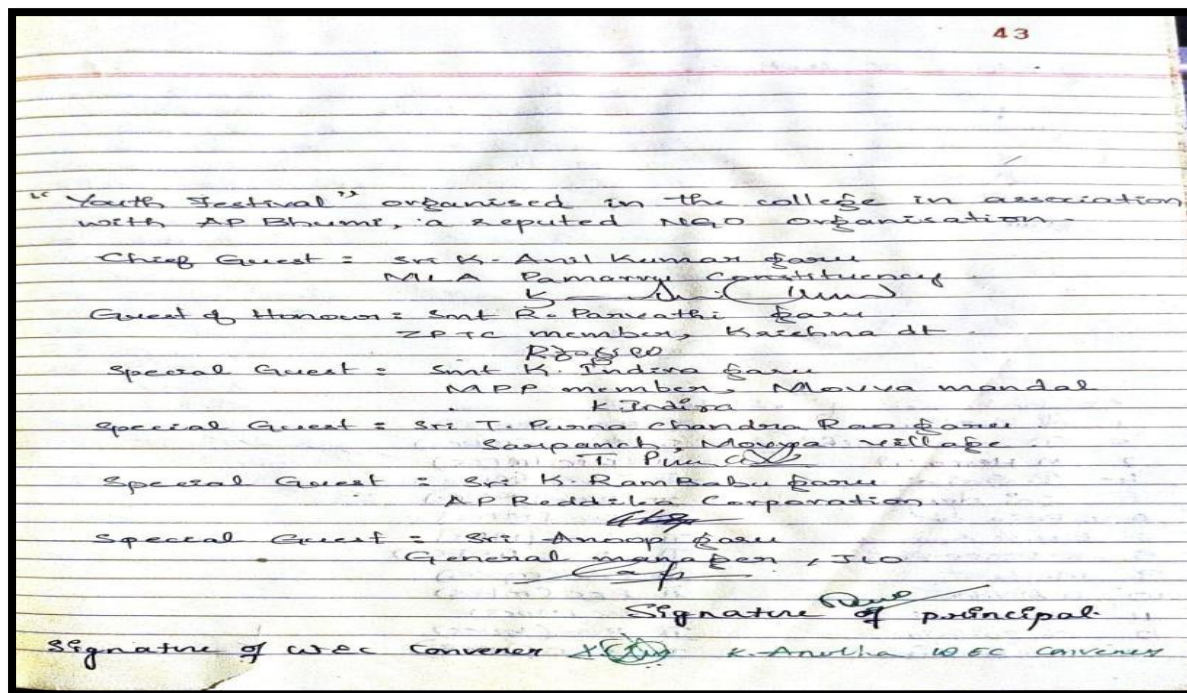 43
"Youth Festival" organised in the college in association
with AP Bhumi, a reputed NGO organisation.
Chief Guest = Sri K. Anil Kumar garu
MLA Pamarru Constituency
Guest of Honour = Smt R. Parvathi garu
ZPTC member, Krishna dt
Special Guest = Smt K. Indira garu
MPP member, Movva mandal
K Indira
Special Guest = Sri T. Purna Chandra Rao garu
Sarpanch, Movva village
Special Guest = Sri K. RamBabu garu
AP Reddika Corporation
Special Guest = Sri Anoop garu
General manager, JIO
Signature of principal
Signature of WEC Convener K. Anutha WEC Convener